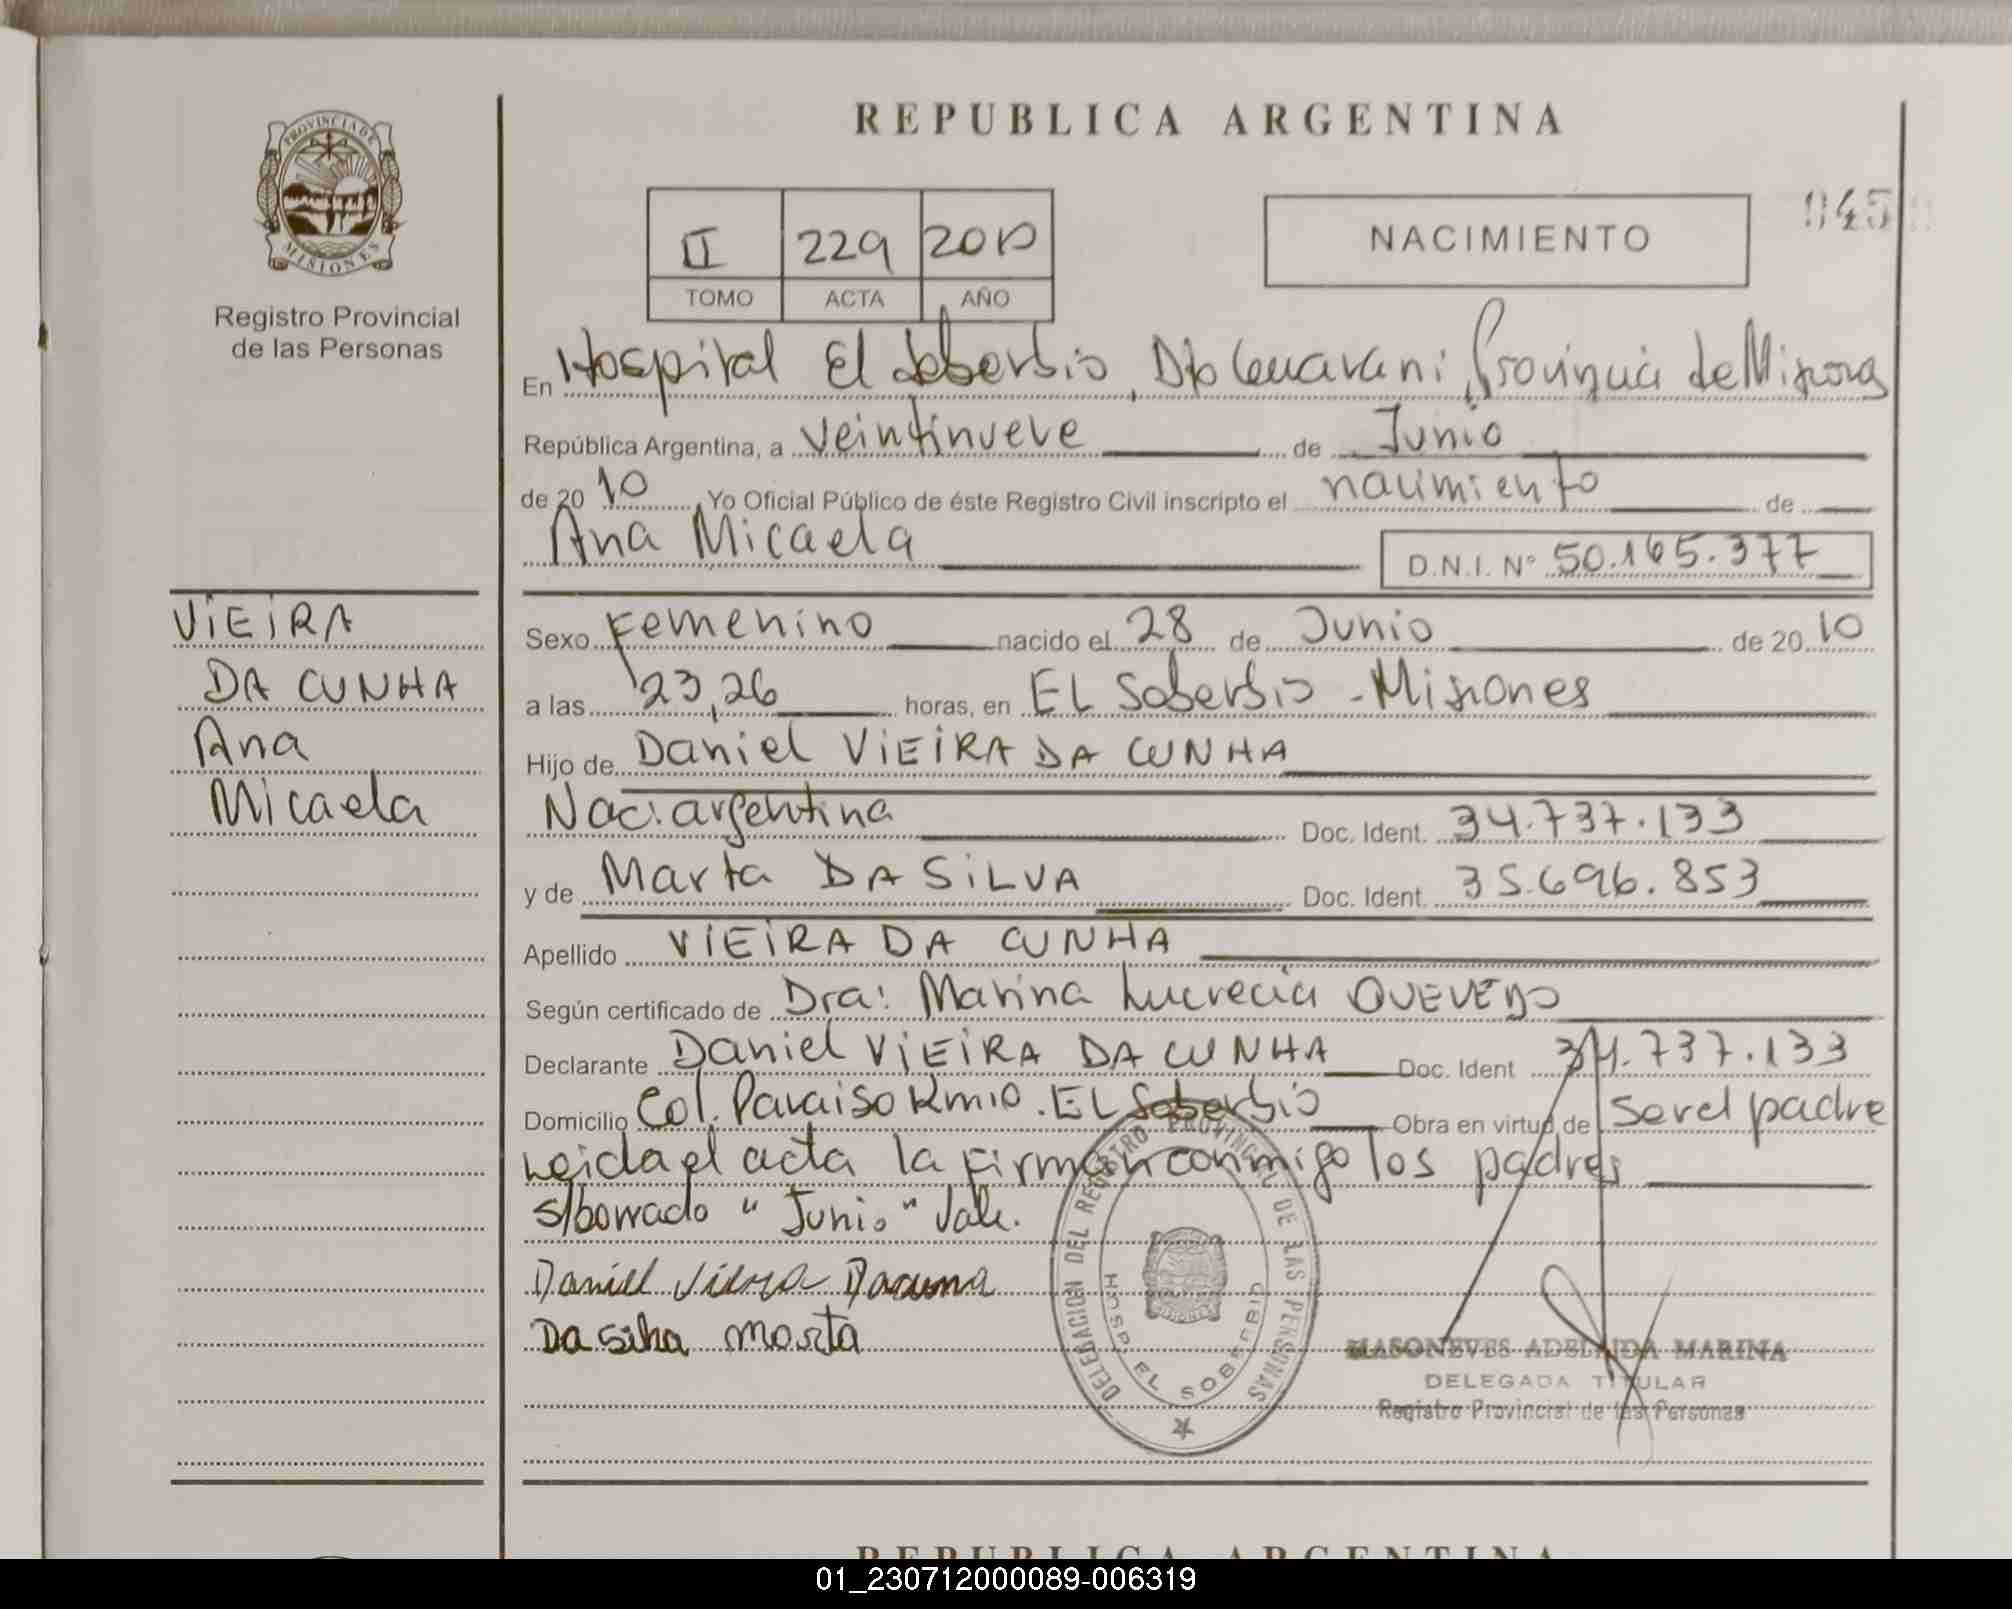 PROVINCIA DE
MISIONES
Registro Provincial
de las Personas
REPUBLICA ARGENTINA
II 229 2010
TOMO ACTA AÑO
NACIMIENTO
045
En Hospital El Soberbio, Dto Guarani, Provincia de Misiones
República Argentina, a veintinueve de Junio
de 2010 Yo Oficial Público de éste Registro Civil inscripto el nacimiento de
Ana Micaela D.N.I. Nº 50.165.377
VIEIRA
DA CUNHA
Ana
Micaela
Sexo Femenino nacido el 28 de Junio de 2010
a las 23,26 horas, en EL Soberbio - Misiones
Hijo de Daniel VIEIRA DA CUNHA
Nac: argentina Doc. Ident. 34.737.133
y de Marta DA SILVA Doc. Ident. 35.696.853
Apellido VIEIRA DA CUNHA
Según certificado de Dra: Marina Lucrecia QUEVEDO
Declarante Daniel VIEIRA DA CUNHA Doc. Ident 34.737.133
Domicilio Col. Paraiso Km10. EL Soberbio Obra en virtud de ser el padre
Leida el acta la firman conmigo los padres
s/borrado "Junio" Vale.
Daniel Vieira Dacuna
Da silva marta
DELEGACION DEL REGISTRO PROVINCIAL DE LAS PERSONAS
HOSP. EL SOBERBIO
MASONEVES ADELAIDA MARINA
DELEGADA TITULAR
Registro Provincial de las Personas
REPUBLICA ARGENTINA
01_230712000089-006319